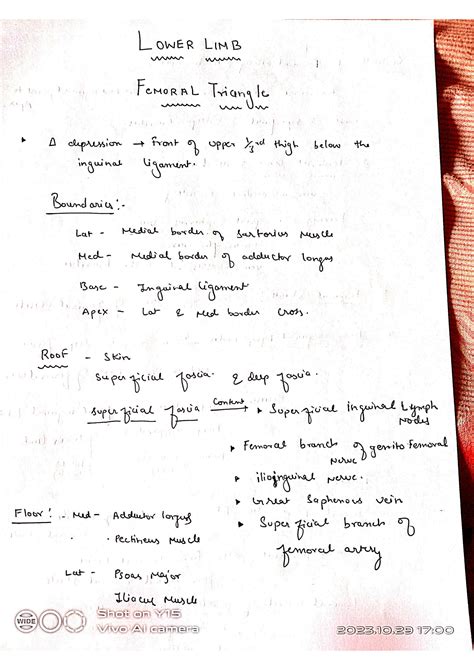 LOWER LIMB
FEMORAL Triangle
Δ depression → Front of upper 1/3rd thigh below the
inguinal ligament.
Boundaries:-
Lat - Medial border of Sartorius Muscle
Med - Medial border of adductor longus
Base - Inguinal ligament
Apex - Lat & Med border cross.
Roof - Skin
Superficial fascia & deep fascia.
Superficial fascia Content → Superficial inguinal Lymph
Nodes
Femoral branch of genitofemoral
Nerve
ilioinguinal nerve.
Great Saphenous vein
Superficial branch of
femoral artery
Floor: - Med - Adductor longus
Pectineus Muscle
Lat - Psoas Major
Iliacus Muscle
WIDE
Shot on Y15
Vivo AI camera
2023.10.29 17:00